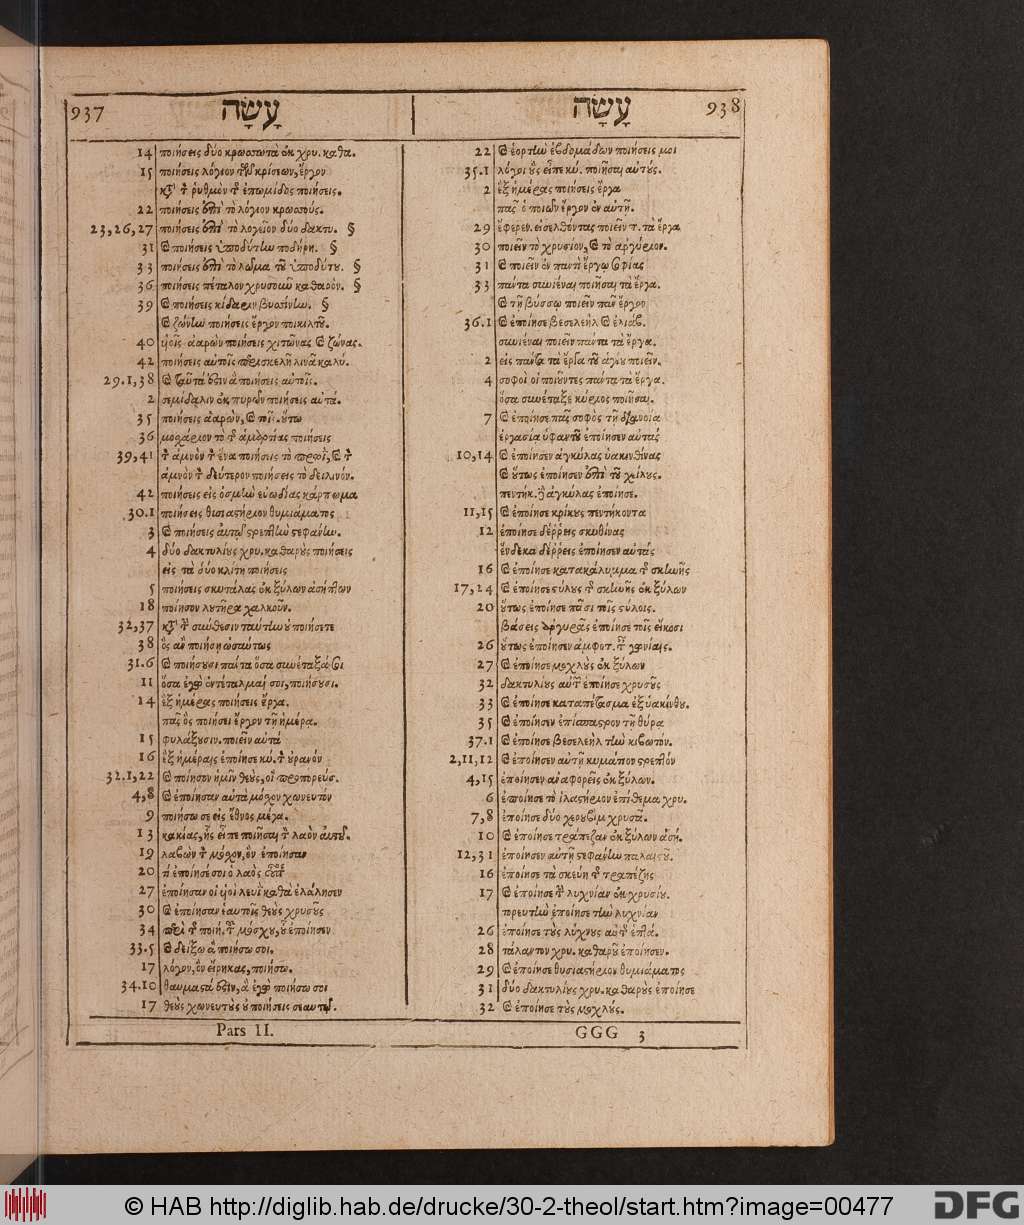 937 עָשָׂה
14 ποιήσεις δύο κροσσωτὰ ἐκ χρυ. καθα.
15 ποιήσεις λόγιον τῶν κρίσεων, ἔργον
κτ̀ τ̀ ῥυθμὸν τ̀ ἐπωμίδος ποιήσεις.
22 ποιήσεις ἐπὶ τὸ λόγιον κρωσσούς.
23,26,27 ποιήσεις ἐπὶ τὸ λογεῖον δύο δακτυ. §
31 καὶ ποιήσεις ὑποδύτην ποδήρη. §
33 ποιήσεις ἐπὶ τὸ λωμα τοῦ ὑποδύτου. §
36 ποιήσεις πέταλον χρυσοῦν καθαρὸν. §
39 καὶ ποιήσεις κίδαριν βυσσίνην. §
καὶ ζώνην ποιήσεις ἔργον ποικιλτοῦ.
40 υἱοῖς ἀαρὼν ποιήσεις χιτῶνας καὶ ζώνας.
42 ποιήσεις αὐτοῖς περισκελῆ λινᾶ καλύ.
29.1,38 καὶ ταῦτά ἐστιν ἃ ποιήσεις αὐτοῖς.
2 σεμίδαλιν ἐκ πυρῶν ποιήσεις αὐτά.
35 ποιήσεις ἀαρὼν, καὶ τοῖς. οὕτω
36 μοσχάριον τὸ τ̀ ἁμαρτίας ποιήσεις
39,41 τ̀ ἀμνὸν τ̀ ἕνα ποιήσεις τὸ πρωῒ, καὶ τ̀
ἀμνὸν τ̀ δεύτερον ποιήσεις τὸ δειλινόν.
42 ποιήσεις εἰς ὀσμὴν εὐωδίας κάρπωμα
30.1 ποιήσεις θυσιαστήριον θυμιάματος
3 καὶ ποιήσεις αὐτῷ στρεπτὴν στεφάνην.
4 δύο δακτυλίους χρυ. καθαροὺς ποιήσεις
εἰς τὰ δύο κλίτη ποιήσεις
5 ποιήσεις σκυτάλας ἐκ ξύλων ἀσήπτων
18 ποίησον λουτῆρα χαλκοῦν.
32,37 κτ̀ τ̀ σύνθεσιν ταύτην οὐ ποιήσετε
38 ὃς ἂν ποιήσῃ ὡσαύτως
31.6 καὶ ποιήσουσι πάντα ὅσα συνέταξά σοι
11 ὅσα ἐγὼ ἐντέταλμαί σοι, ποιήσουσι.
14 ἓξ ἡμέρας ποιήσεις ἔργα.
πᾶς ὃς ποιήσει ἔργον τῇ ἡμέρᾳ.
15 φυλάξουσιν. ποιεῖν αὐτὰ
16 ἓξ ἡμέραις ἐποίησε κύ. τ̀ οὐρανόν
32.1,22 καὶ ποίησον ἡμῖν θεούς, οἳ προπορεύσ.
4,8 καὶ ἐποίησαν αὐτὰ μόσχον χωνευτόν
9 ποιήσω σε εἰς ἔθνος μέγα.
13 κακίας, ἧς εἶπε ποιῆσαι τ̀ λαὸν αὐτοῦ.
19 λαβὼν τ̀ μόσχον, ὃν ἐποίησαν
20 τί ἐποίησέ σοι ὁ λαὸς οὗτος
27 ἐποίησαν οἱ υἱοὶ λευὶ καθὰ ἐλάλησεν
30 καὶ ἐποίησαν ἑαυτοῖς θεοὺς χρυσοῦς
34 περὶ τ̀ ποιή. τ̀ μόσχου, οὗ ἐποίησεν
33.5 καὶ δείξω ἃ ποιήσω σοι.
17 λόγον, ὃν εἴρηκας, ποιήσω.
34.10 θαυμαστά ἐστιν, ἃ ἐγὼ ποιήσω σοι
17 θεοὺς χωνευτοὺς οὐ ποιήσεις σεαυτῷ.
Pars II.
עָשָׂה 938
22 καὶ ἑορτὴν ἑβδομάδων ποιήσεις μοι
35.1 λόγοι οὓς εἶπε κύ. ποιῆσαι αὐτούς.
2 ἓξ ἡμέρας ποιήσεις ἔργα
πᾶς ὁ ποιῶν ἔργον ἐν αὐτῇ.
29 ἔφερεν. εἰσελθόντας ποιεῖν π. τὰ ἔργα
30 ποιεῖν τὸ χρυσίον, καὶ τὸ ἀργύριον.
31 καὶ ποιεῖν ἐν παντὶ ἔργῳ σοφίας
33 πάντα συνιέναι ποιῆσαι τὰ ἔργα.
καὶ τῇ βύσσῳ ποιεῖν πᾶν ἔργον
36.1 καὶ ἐποίησε βεσελεὴλ καὶ ἐλιάβ.
συνιέναι ποιεῖν πάντα τὰ ἔργα.
2 εἰς πάντα τὰ ἔργα τοῦ ἁγίου ποιεῖν.
4 σοφοὶ οἱ ποιοῦντες πάντα τὰ ἔργα.
ὅσα συνέταξε κύριος ποιῆσαι.
7 καὶ ἐποίησε πᾶς σοφὸς τῇ διανοίᾳ
ἐργασία ὑφαντοῦ ἐποίησεν αὐτάς
10,14 καὶ ἐποίησεν ἀγκύλας ὑακινθίνας
καὶ οὕτως ἐποίησεν ἐπὶ τοῦ χείλους.
πεντήκ. δὲ ἀγκύλας ἐποίησε.
11,15 καὶ ἐποίησε κρίκους πεντήκοντα
12 ἐποίησε δέρρεις σκυθίνας
ἕνδεκα δέρρεις ἐποίησεν αὐτάς
16 καὶ ἐποίησε κατακάλυμμα τ̀ σκηνῆς
17,24 καὶ ἐποίησε στύλους τ̀ σκηνῆς ἐκ ξύλων
20 οὕτως ἐποίησε πᾶσι τοῖς στύλοις.
βάσεις ἀργυρᾶς ἐποίησε τοῖς εἴκοσι
26 οὕτως ἐποίησεν ἀμφοτ. τ̀ γωνίαις.
27 καὶ ἐποίησε μοχλοὺς ἐκ ξύλων
32 δακτυλίους αὐτ̀ ἐποίησε χρυσοῦς
33 καὶ ἐποίησε καταπέτασμα ἐξ ὑακίνθου.
35 καὶ ἐποίησεν ἐπίσπαστρον τῇ θύρᾳ
37.1 καὶ ἐποίησε βεσελεὴλ τὴν κιβωτόν.
2,11,12 καὶ ἐποίησεν αὐτῇ κυμάτιον στρεπτόν
4,15 ἐποίησεν ἀναφορεῖς ἐκ ξύλων.
6 ἐποίησε τὸ ἱλαστήριον ἐπίθεμα χρυ.
7,8 ἐποίησε δύο χερουβὶμ χρυσᾶ.
10 καὶ ἐποίησε τράπεζαν ἐκ ξύλων ἀσή.
12,31 ἐποίησεν αὐτῇ στεφάνην παλαιστοῦ.
16 ἐποίησε τὰ σκεύη τ̀ τραπέζης
17 καὶ ἐποίησε τ̀ λυχνίαν ἐκ χρυσίου.
τορευτὴν ἐποίησε τὴν λυχνίαν
26 ἐποίησε τοὺς λύχνους αὐτ̀ ἑπτά.
28 τάλαντον χρυ. καθαροῦ ἐποίησεν.
29 καὶ ἐποίησε θυσιαστήριον θυμιάματος
31 δύο δακτυλίους χρυ. καθαροὺς ἐποίησε
32 καὶ ἐποίησε τοὺς μοχλούς.
GGG 3
© HAB http://diglib.hab.de/drucke/30-2-theol/start.htm?image=00477
DFG